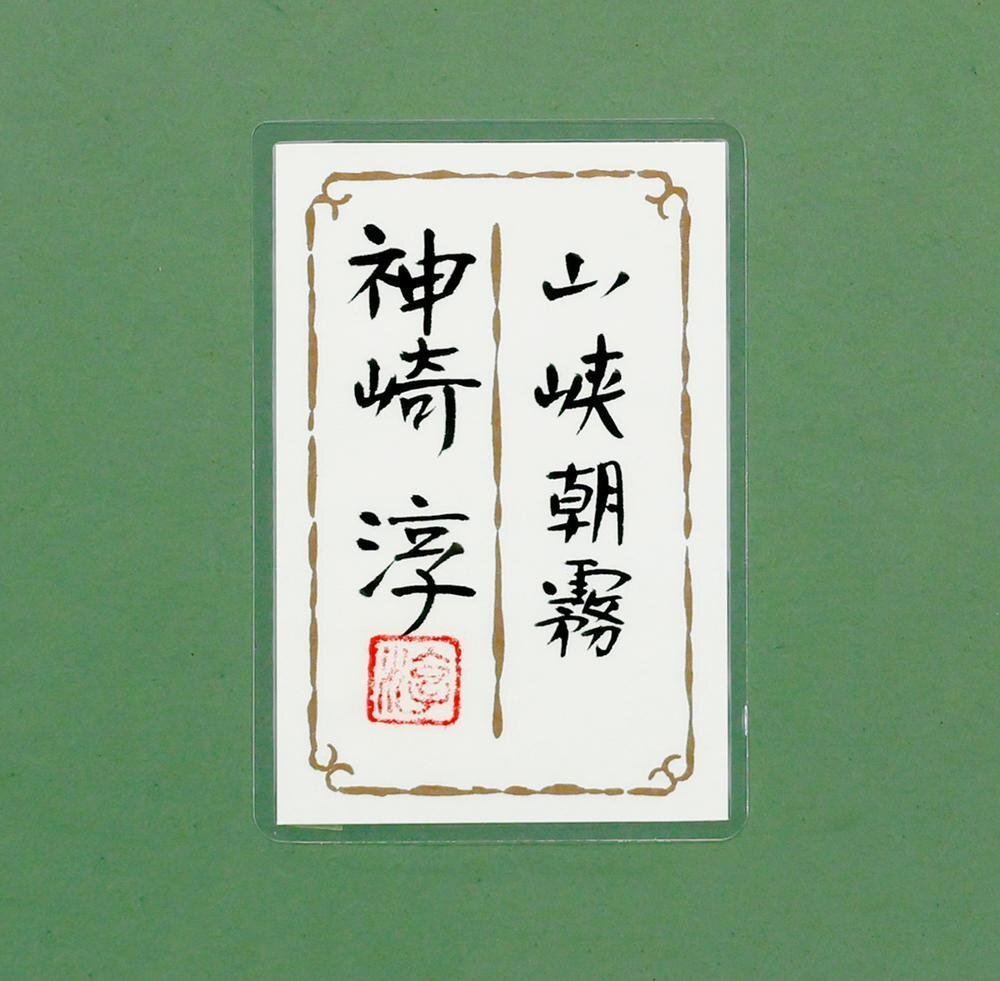 山峡朝霧
神崎 淳
淳